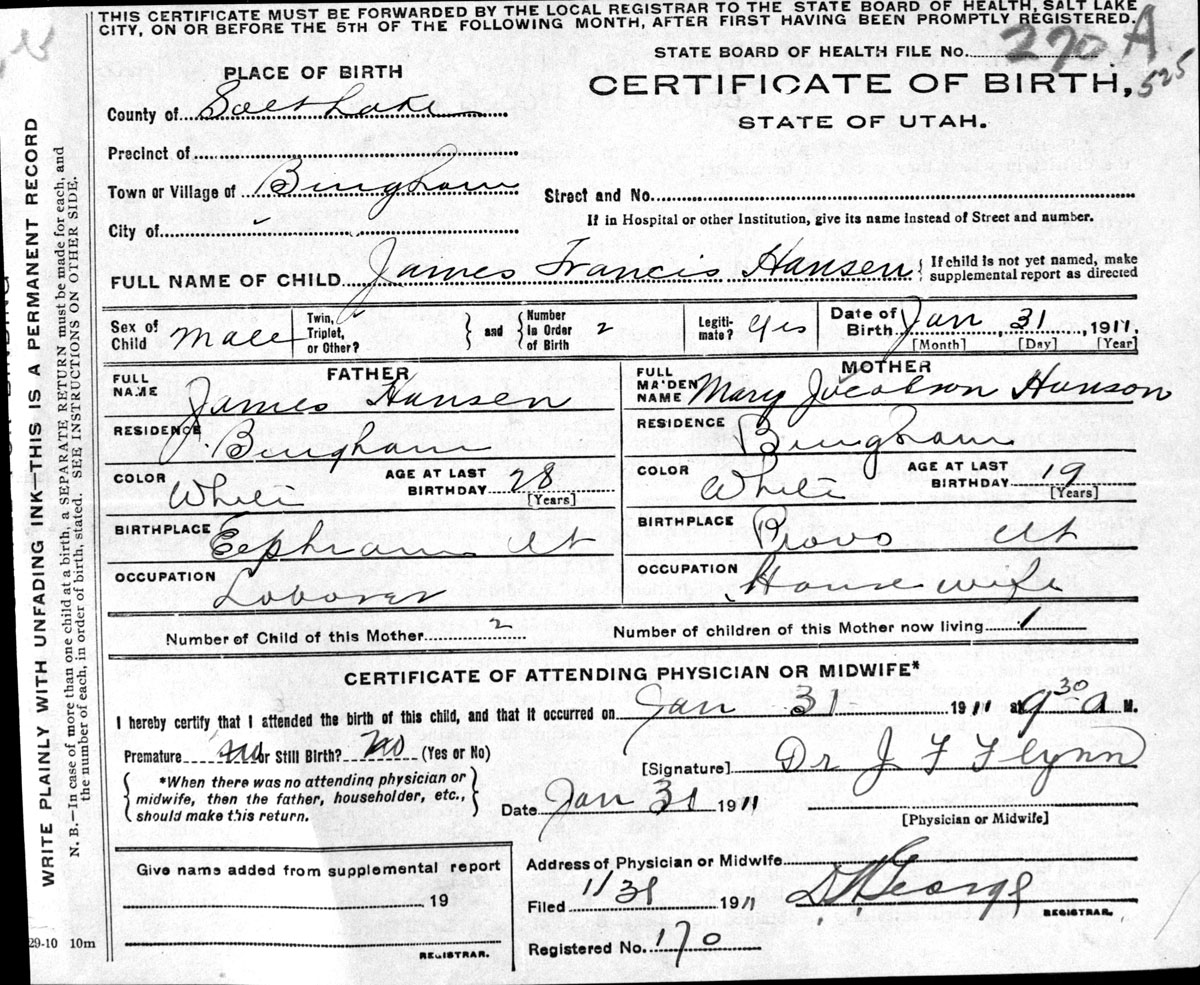 THIS CERTIFICATE MUST BE FORWARDED BY THE LOCAL REGISTRAR TO THE STATE BOARD OF HEALTH, SALT LAKE
CITY, ON OR BEFORE THE 5TH OF THE FOLLOWING MONTH, AFTER FIRST HAVING BEEN PROMPTLY REGISTERED.
STATE BOARD OF HEALTH FILE No. 270 A.
525
PLACE OF BIRTH
CERTIFICATE OF BIRTH,
STATE OF UTAH.
County of Salt Lake
Precinct of
Town or Village of Bingham
Street and No.
If in Hospital or other Institution, give its name instead of Street and number.
City of
FULL NAME OF CHILD James Francis Hansen { If child is not yet named, make supplemental report as directed
Sex of Child Male
Twin, Triplet, or Other? } and { Number in Order of Birth 2
Legitimate? Yes
Date of Birth Jan 31, 1911,
[Month] [Day] [Year]
FATHER
MOTHER
FULL NAME James Hansen
FULL MAIDEN NAME Mary Jacobson Hanson
RESIDENCE Bingham
RESIDENCE Bingham
COLOR White
AGE AT LAST BIRTHDAY 28
[Years]
COLOR White
AGE AT LAST BIRTHDAY 19
[Years]
BIRTHPLACE Eephraim Ut
BIRTHPLACE Provo Ut
OCCUPATION Laborer
OCCUPATION House wife
Number of Child of this Mother 2
Number of children of this Mother now living 1
CERTIFICATE OF ATTENDING PHYSICIAN OR MIDWIFE*
I hereby certify that I attended the birth of this child, and that it occurred on Jan 31 1911 at 9 30 a M.
Premature no or Still Birth? no (Yes or No)
{ *When there was no attending physician or midwife, then the father, householder, etc., should make this return. }
[Signature] Dr J F Flynn
Date Jan 31 1911
[Physician or Midwife]
Give name added from supplemental report
19
REGISTRAR.
Address of Physician or Midwife
Filed 1/31 1911
George
REGISTRAR.
Registered No. 170
29-10 10m
WRITE PLAINLY WITH UNFADING INK—THIS IS A PERMANENT RECORD
N. B.—In case of more than one child at a birth, a SEPARATE RETURN must be made for each, and
the number of each, in order of birth, stated. SEE INSTRUCTIONS ON OTHER SIDE.